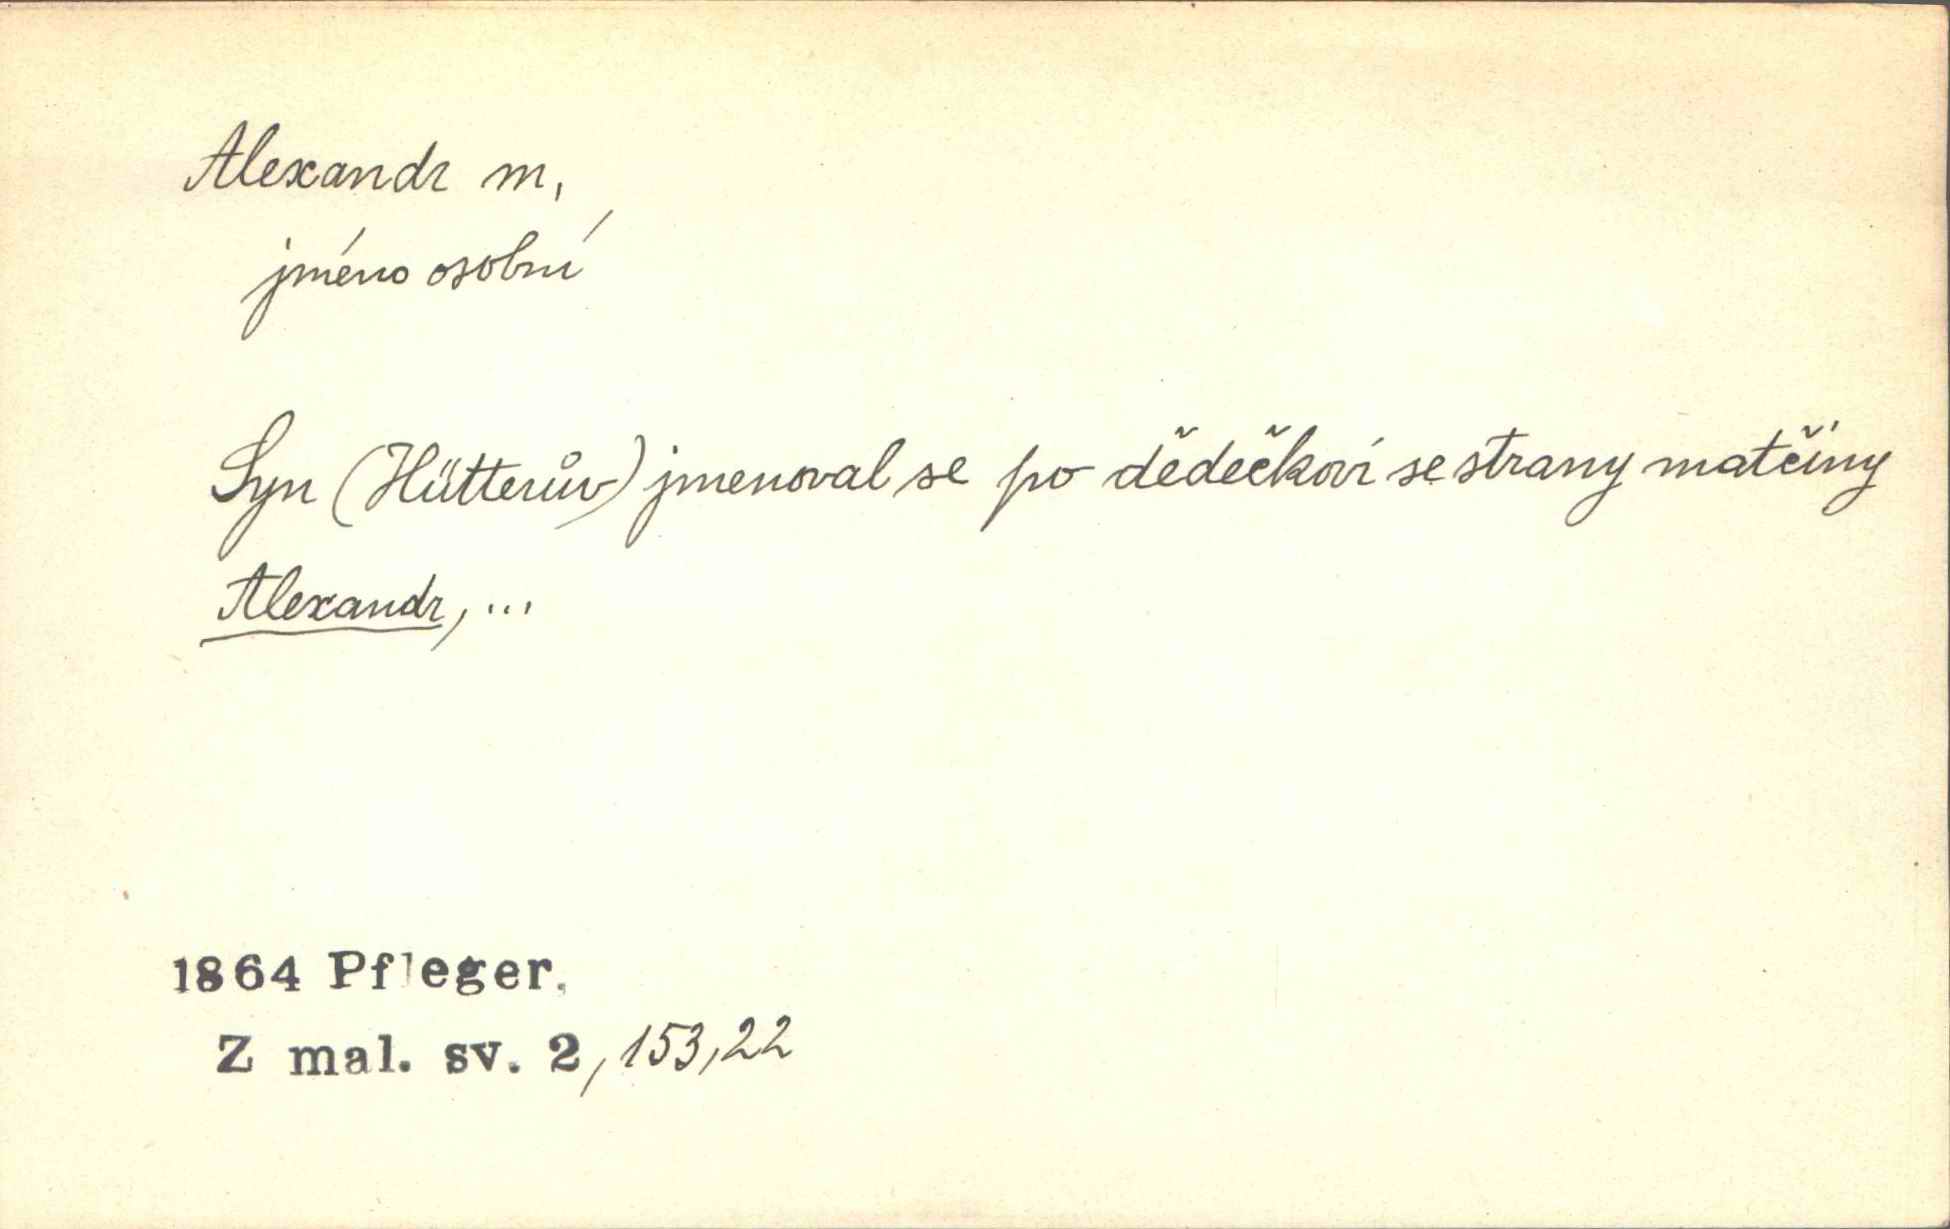 Alexandr m,
jméno osobní
Syn (Hütterův) jmenoval se po dědečkovi se strany matčiny
Alexandr, ...
1864 Pfleger.
Z mal. sv. 2, 153,22